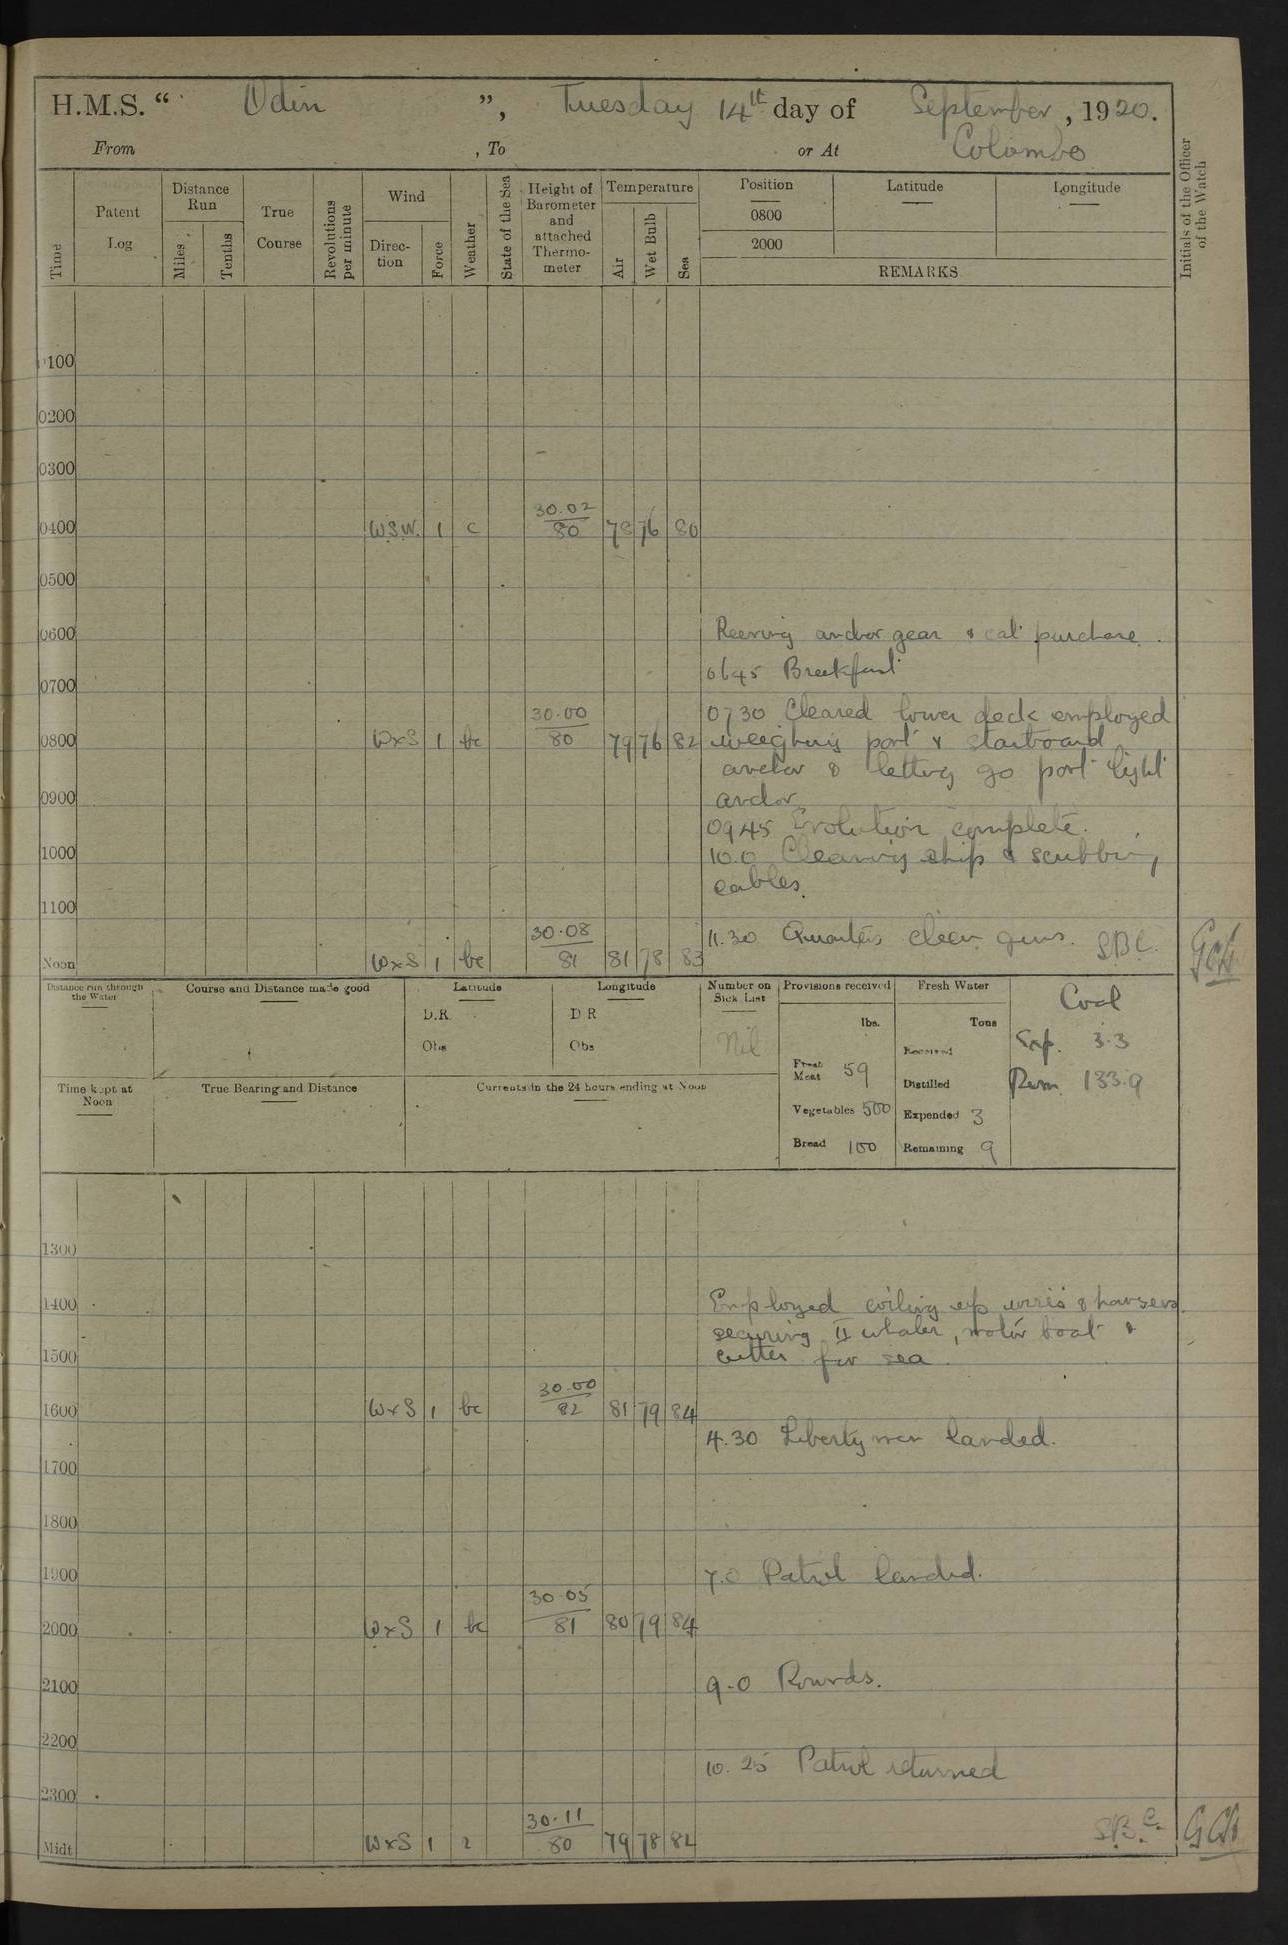 H.M.S. “ Odin ”, Tuesday 14th day of September, 1920.
From , To or At Colombo
Time
Patent Log
Distance Run
Miles
Tenths
True Course
Revolutions per minute
Wind
Direction
Force
Weather
State of the Sea
Height of Barometer and attached Thermometer
Temperature
Air
Wet Bulb
Sea
Position Latitude Longitude
0800
2000
REMARKS
Initials of the Officer of the Watch
0100
0200
0300
30.02
0400 W.S.W. 1 c 80 78 76 80
0500
0600 Reeving anchor gear & cat purchase.
0645 Breakfast
0700
30.00 0730 Cleared lower deck employed
0800 W x S 1 bc 80 79 76 82 weighing port & starboard
anchor & letting go port light
0900 anchor
0945 Evolution complete.
1000 10.0 Cleaning ship & scrubbing
cables.
1100
30.08 11.30 Quarters clean guns. SBC.
Noon W x S 1 bc 81 81 78 83
Distance run through the Water
Course and Distance made good
Latitude
D.R.
Obs
Longitude
D R
Obs
Number on Sick List
Nil
Provisions received
lbs.
Fresh Meat 59
Vegetables 500
Bread 100
Fresh Water
Tons
Received
Distilled
Expended 3
Remaining 9
Coal
Exp. 3.3
Rem. 133.9
Time kept at Noon
True Bearing and Distance
Currents in the 24 hours ending at Noon
1300
1400 Employed coiling up wires & hawsers
securing II whaler, motor boat &
1500 cutter for sea.
30.00
1600 W x S 1 bc 82 81 79 84
4.30 Liberty men landed.
1700
1800
1900 7.0 Patrol landed.
30.05
2000 W x S 1 bc 81 80 79 84
2100 9.0 Rounds.
2200
10.25 Patrol returned
2300
30.11
Midt W x S 1 80 79 78 82 SB.C.